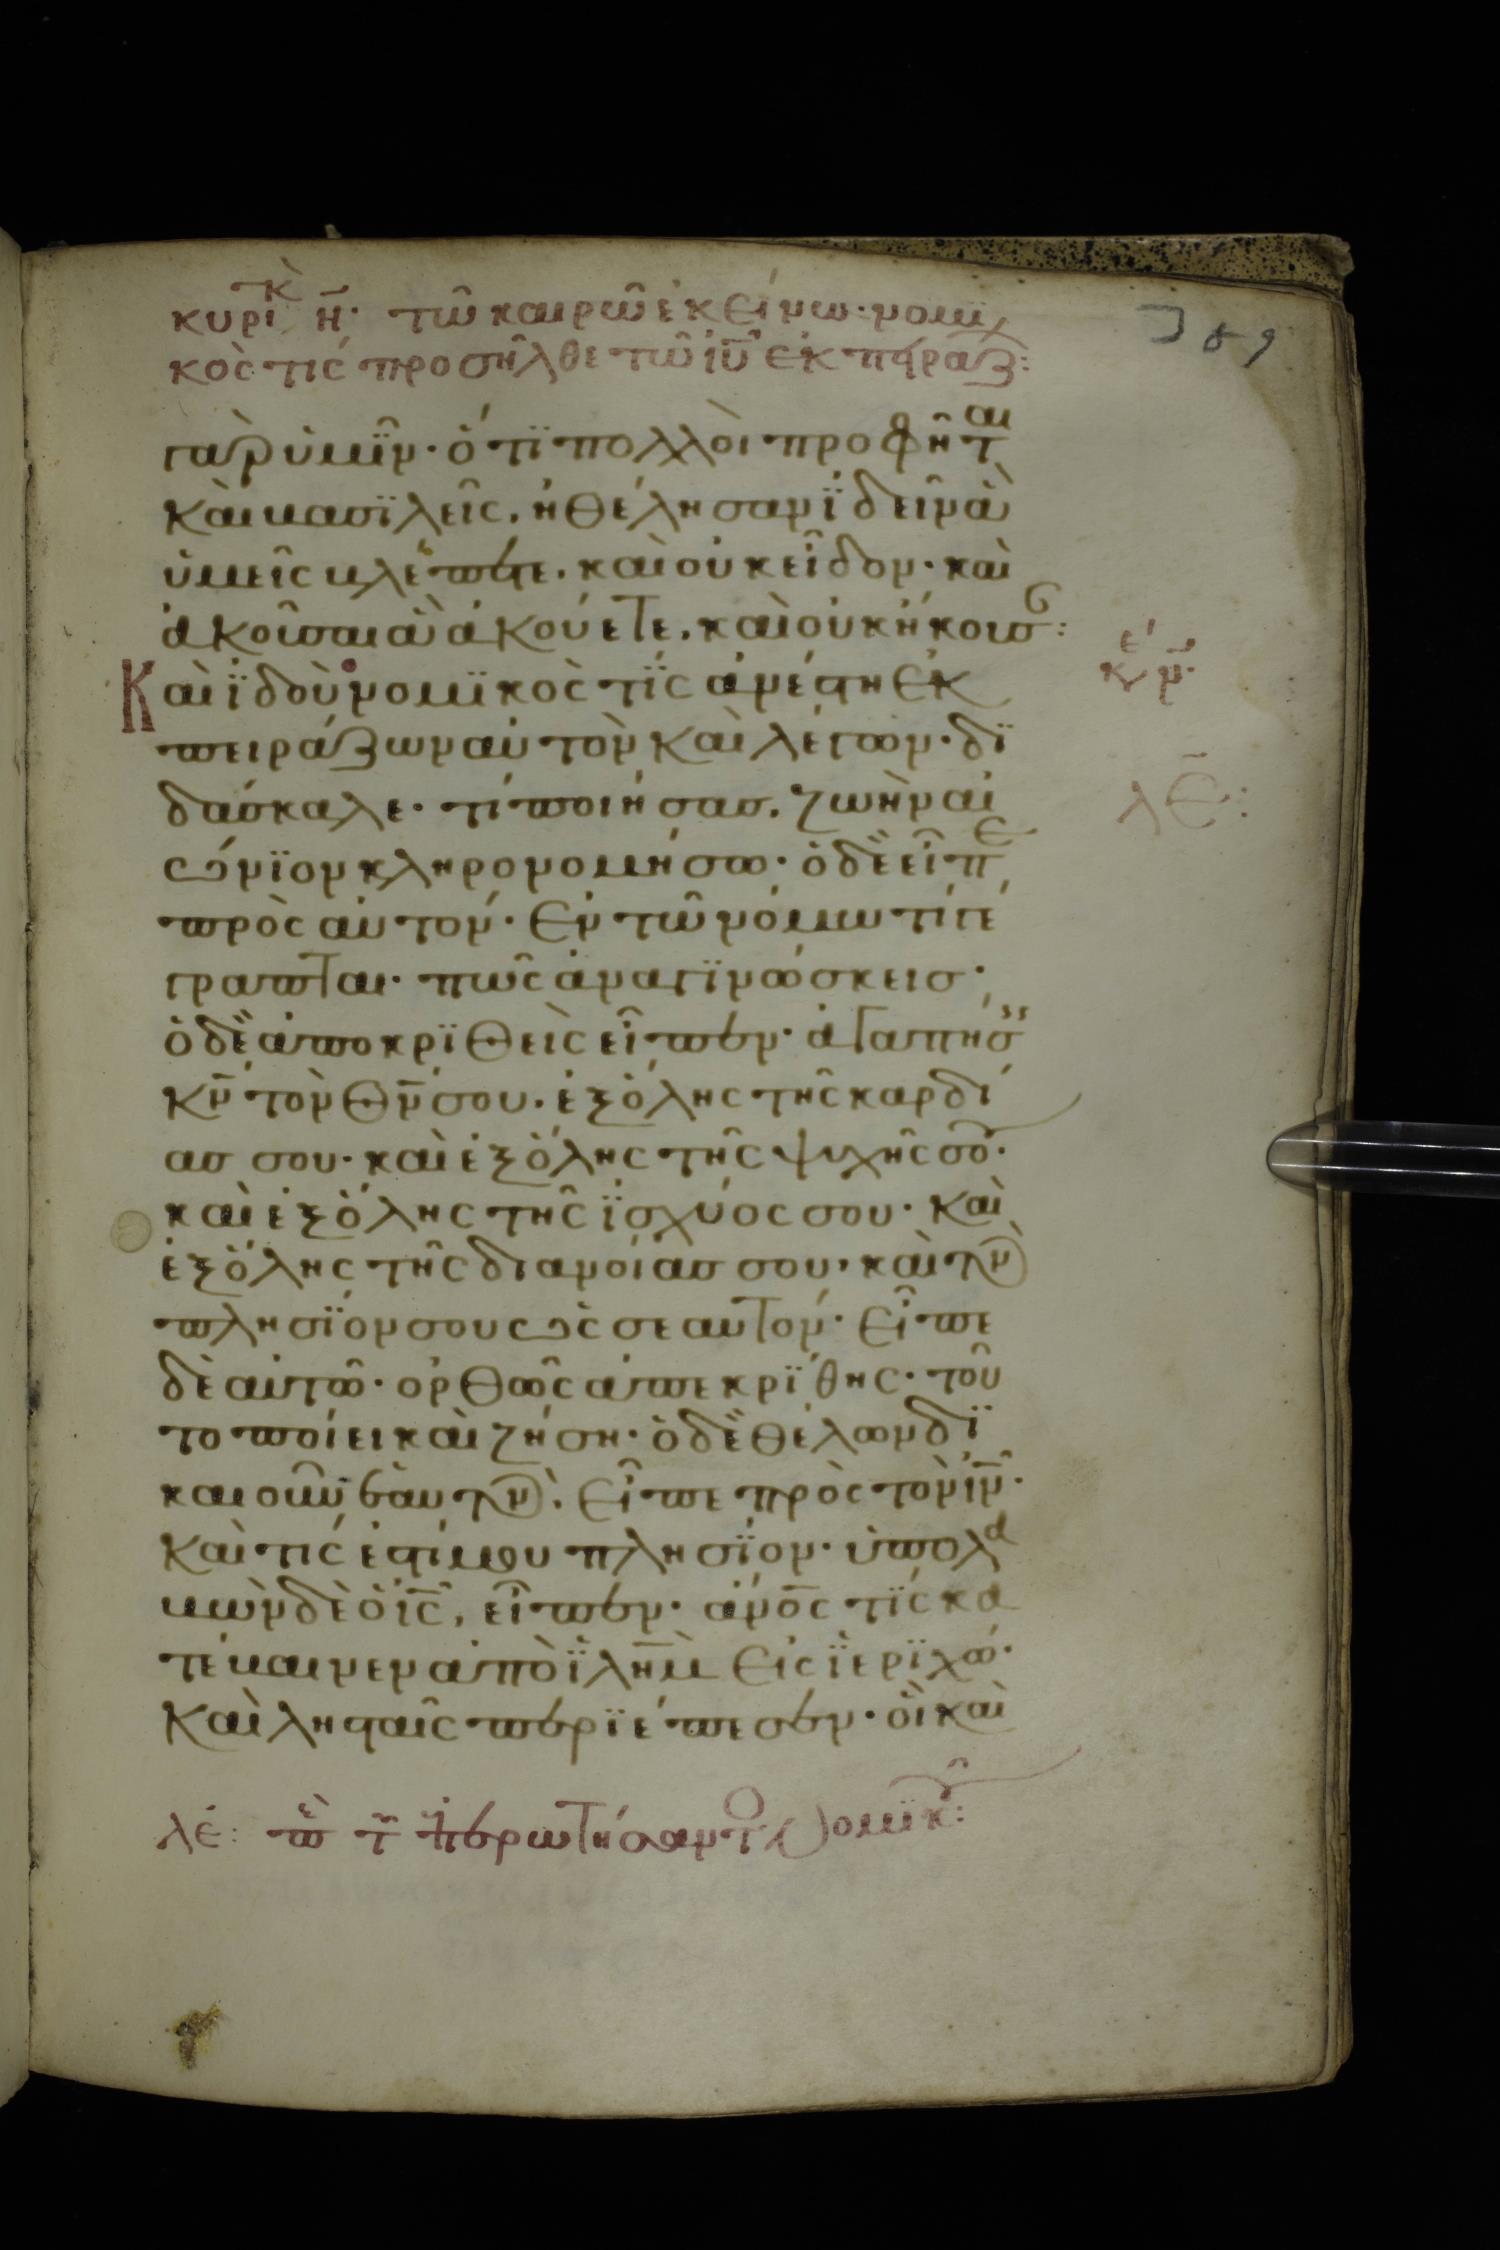 κυρι κ η· τῶ καιρῶ ἐκείνω· νομϊ
κός τις προσῆλθε τῶ ιυ ἐκπηράζ:
γὰρ ὑμῖν· ὅτϊ πολλοὶ προφῆται
καὶ βασϊλεῖς, ἠθέλησαν ϊδεῖν ἃ
ὑμεῖς βλέπετε, καὶ οὐκ εἶδον· καὶ
ἀκοῦσαι ἃ ἀκούετε, καὶ οὐκ ἤκουσ:
Καὶ ϊδοὺ νομϊκὸς τϊς ἀνέστη ἐκ
πειράζων αὐτὸν καὶ λέγων· δϊ
δάσκαλε· τί ποιήσας, ζωὴν αἰ
ώνϊον κληρονομήσω· ὁ δὲ εἶπε
πρὸς αὐτόν· Ἐν τῶ νόμω τί γέ
γραπται· πῶς ἀναγϊνώσκεισ·
ὁ δὲ ἀποκρϊθεὶς εἶπεν· ἀγαπήσ
κν τὸν θν σου, ἐξ ὅλης τῆς καρδί
ασ σου· καὶ ἐξ ὅλης τῆς ψυχῆς σου·
καὶ ἐξ ὅλης τῆς ϊσχύος σου· καὶ
ἐξ ὅλης τῆς διανοίασ σου, καὶ τὸν
πλησϊον σου ὡς σεαυτόν· Εἶπε
δὲ αὐτῶ· ὀρθῶς ἀπεκρϊθης· τοῦ
το ποίει καὶ ζήση· ὁ δὲ θέλων δϊ
καιοῦν ἑαυτὸν, Εἶπε πρὸς τὸν ιν·
Καὶ τίς ἐστί μου πλησϊον· ὑπολα
βὼν δὲ ὁ ις, εἶπεν· ἄνος τϊς κα
τέβαινεν ἀπὸ ϊλημ Εἰς ϊερϊχώ·
Καὶ λησταῖς περϊέπεσεν· οἳ καὶ
λε: π τ ἐπερωτήσαντο νομϊκ:
λε: